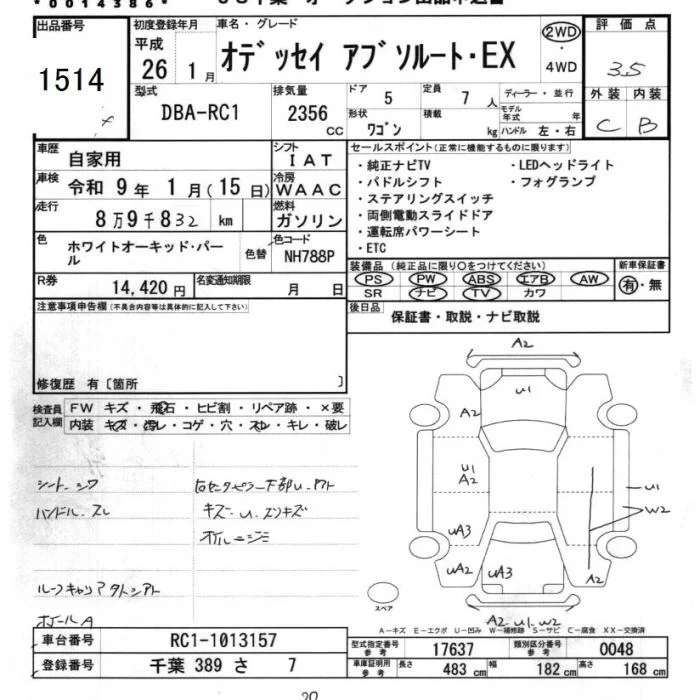 *0014386*
出品番号
1514
初度登録年月
平成
26 1月
車名・グレード
オデッセイ アブソルート・EX
2WD
・
4WD
評価点
3.5
外装 内装
C B
型式
DBA-RC1
排気量
2356
CC
ドア
5
定員
7 人
形状
ワゴン
積載
kg
ディーラー・並行
モデル年式 年
ハンドル 左・右
車歴
自家用
シフト
IAT
車検
令和 9年 1月(15日)
冷房
WAAC
走行
8万9千832 km
燃料
ガソリン
色
ホワイトオーキッド・パール
色替
色コード
NH788P
R券
14,420円
名変通知期限
月 日
セールスポイント(正常に機能するものに限ります)
・純正ナビTV ・LEDヘッドライト
・パドルシフト ・フォグランプ
・ステアリングスイッチ
・両側電動スライドドア
・運転席パワーシート
・ETC
装備品(純正品に限り○をつけてください)
PS PW ABS エアB AW
SR ナビ TV カワ
新車保証書
有・無
後日品
保証書・取説・ナビ取説
注意事項申告欄(不具合内容等は具体的に記入して下さい)
修復歴 有〔箇所 〕
検査員記入欄
FW キズ・飛石・ヒビ割・リペア跡・×要
内装 キズ・汚レ・コゲ・穴・スレ・キレ・破レ
シートシワ
ハンドルスレ
キズ・U・スリキズ
ルーフキャリアタトシアト
ホイールA
A2
U1
A2
U1
A2
UA3
UA2
UA3
U1
W2
A2
A2・U1・W2
スペア
A-キズ E-エクボ U-凹み W-補修跡 S-サビ C-腐食 XX-交換済
車台番号
RC1-1013157
登録番号
千葉 389 さ 7
型式指定番号
参考
17637
類別区分番号
参考
0048
車庫証明用
参考
長さ
483 cm
幅
182 cm
高さ
168 cm
20